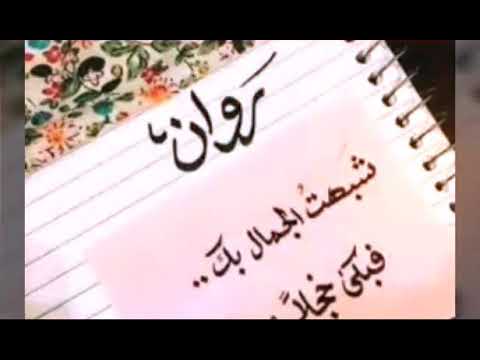 روان،
شبهتُ الجمال بك..
فبكىٰ خجلاً